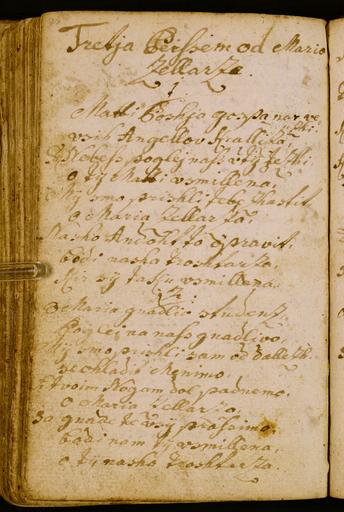 Tretja Peissem od Maria
Zellarza
1
Matti Boshja gospa
vsih Angellov Krallza,
Nebess poglej na
o ti Matti vsmillena,
Mÿ smo prishli tebe zhastit,
o Maria Zellarza.
Nasho Andohtto opravit,
bodi nasha troshtarza,
Mir vsmillena.
2
Maria gnadliv studenz,
Poglei na nass gnadlivo,
Mÿ smo prishli sam od dallezh
se ohladit Menimo,
K tvoim Nogam dol padnemo,
o Maria Zellarza,
Sa gnade te vsÿ prossimo,
bodi nam tÿ vsmillena,
o tÿ nasha troshtarza.